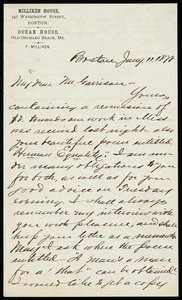 MILLIKEN HOUSE,
197 WASHINGTON STREET,
BOSTON.
OCEAN HOUSE,
OLD ORCHARD BEACH, ME.
P. MILLIKEN.
Boston Jany 11. 1878
My dear Mr Garrison—
Yours,
containing a remission of
towards our work in Mass.
was received last night also
your beautiful poem entitled
Human Equality. I am
under many obligations to you
for both, as well as for your
good advice on Tuesday
evening. I shall always
remember my interview with
you with pleasure, and shall
keep your letter as a memento
May I ask where the poem
entitled "A man's a man
for a' that" can be obtained.
I desired to get a copy